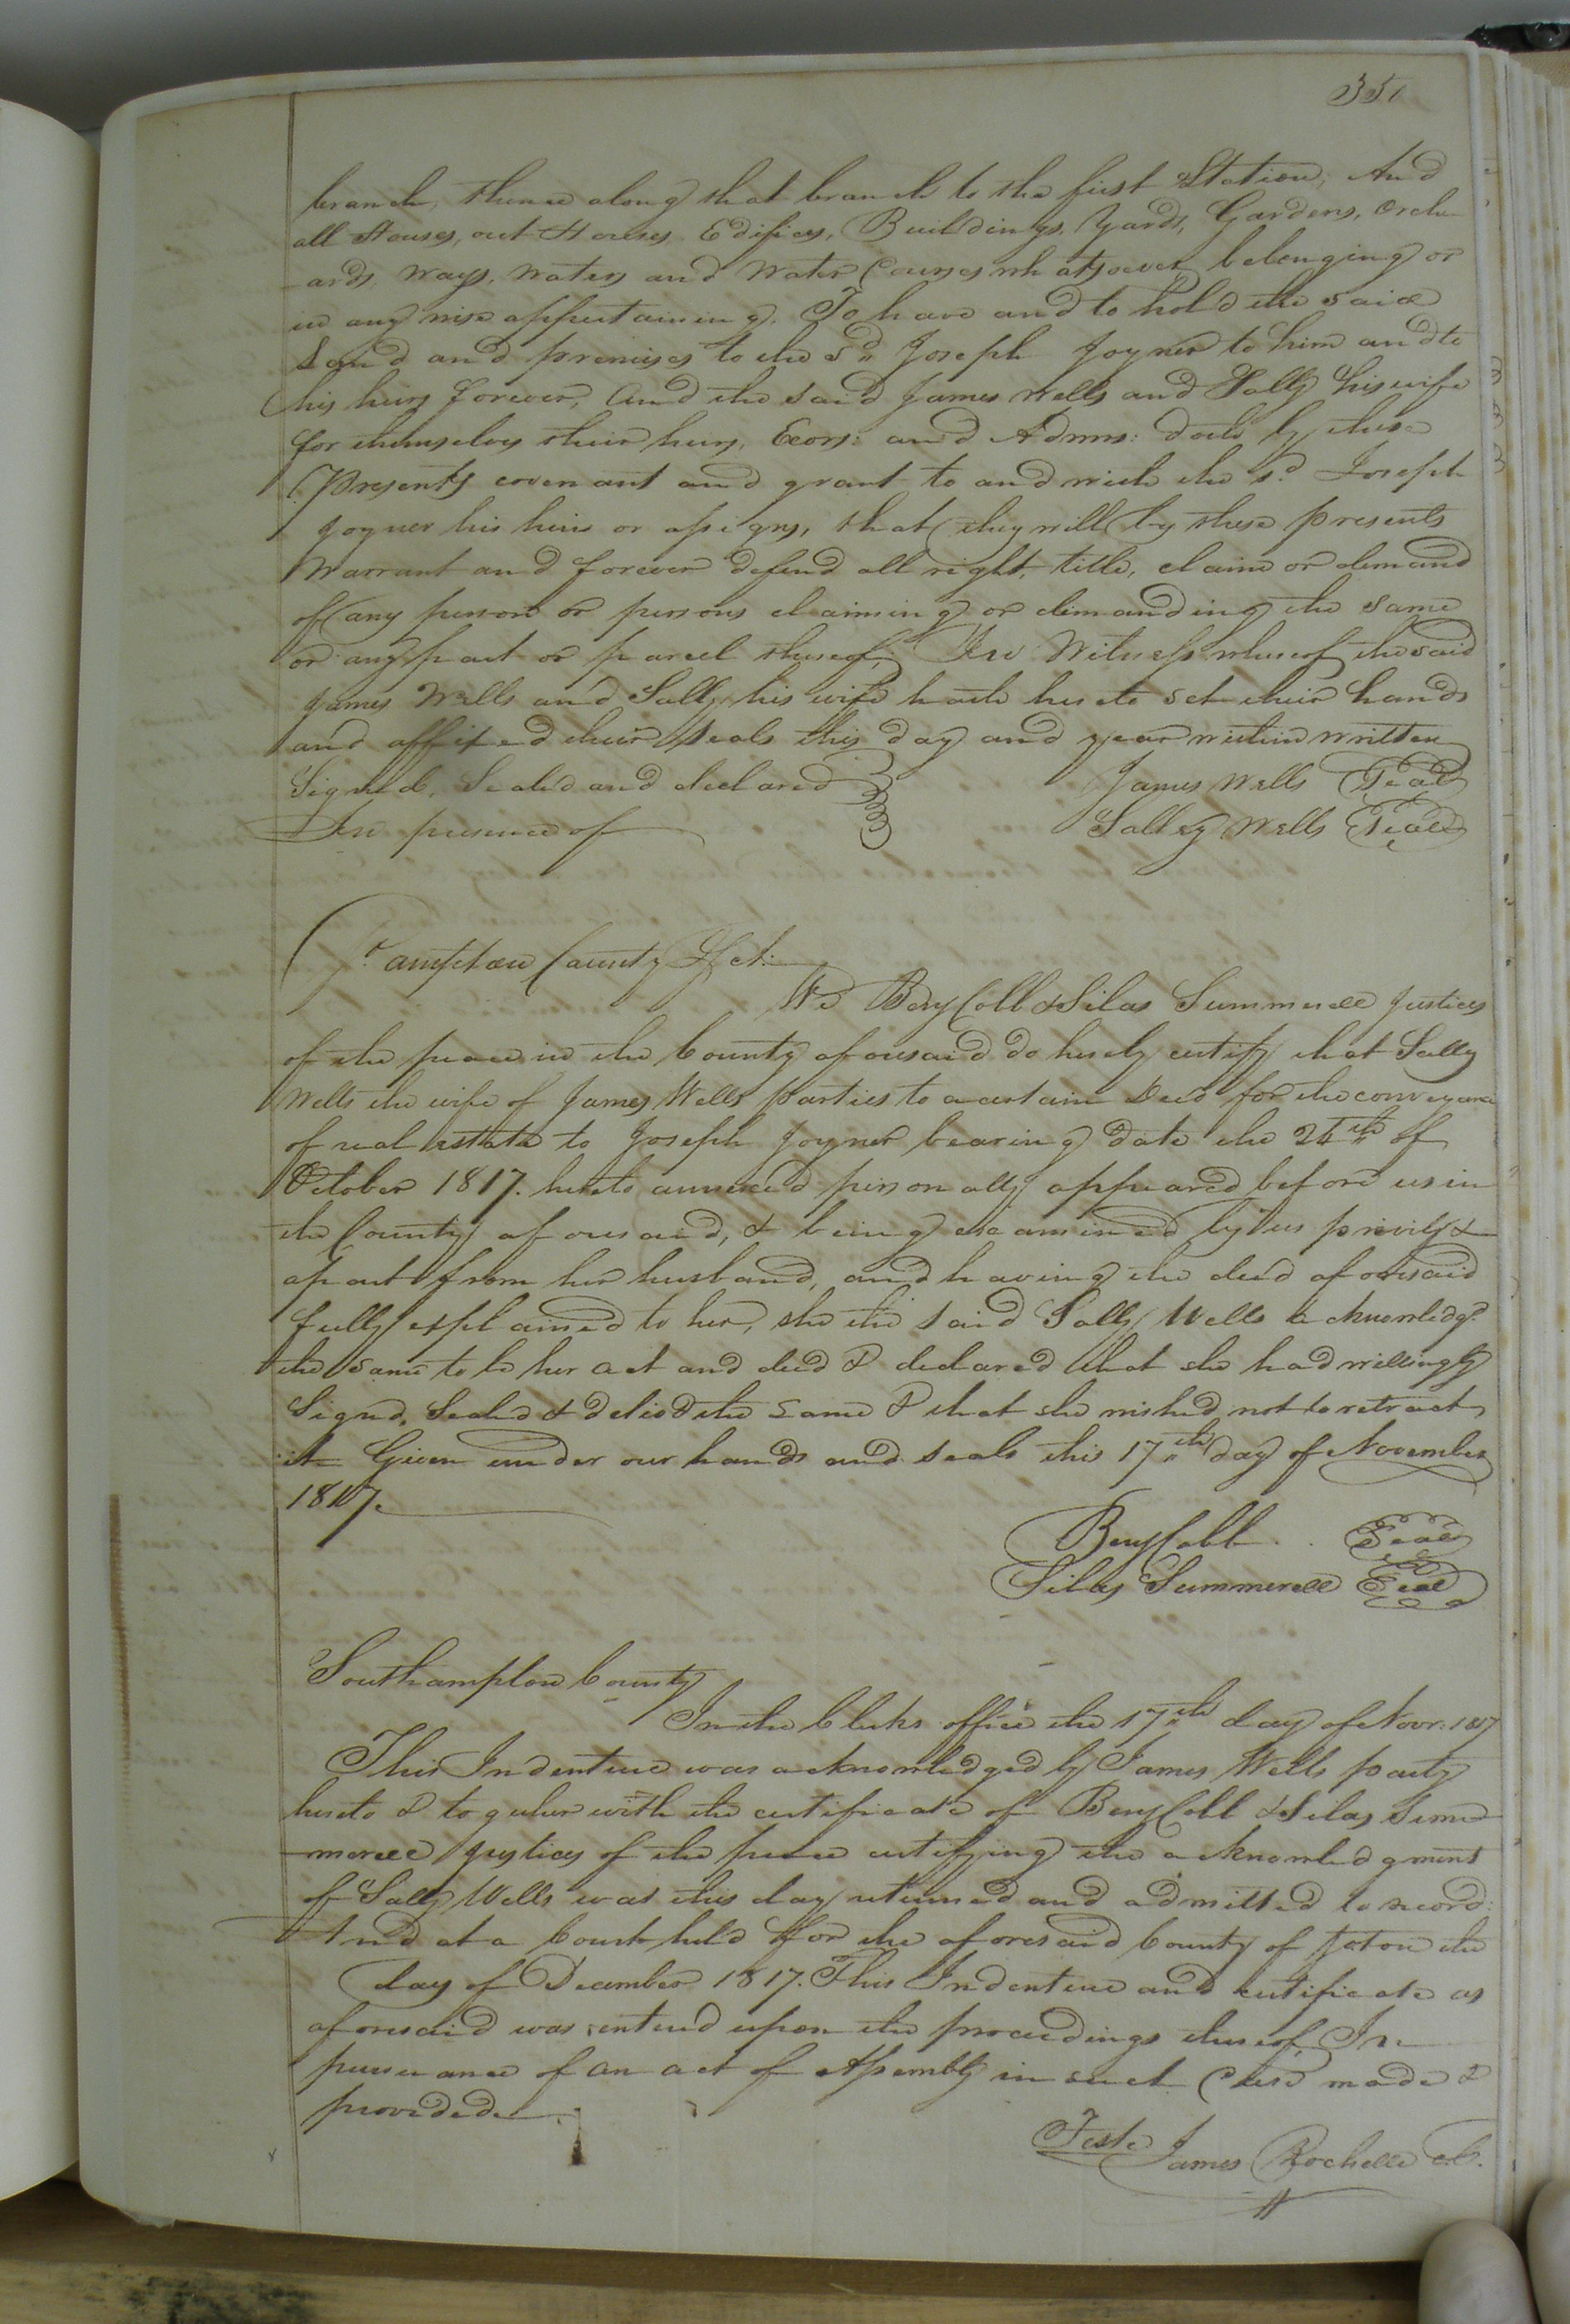 351
branch, thence along that branch to the first Station, And
all Houses, out Houses Edifices, Buildings, Yards, Gardens, Orch
-ards, Ways, Waters and Water Courses whatsoever belonging or
in any wise appertaining, To have and to hold the said
Land and premises to the sd. Joseph Joyner to him and to
his heirs forever, And the said James Wells and Sally his wife
for themselves their heirs, Exors: and Admrs: doth by these
Presents covenant and grant to and with the sd. Joseph
Joyner his heirs or assigns, that they will by these presents
Warrant and forever defend all right, title, claim or demand
of any person or persons claiming or demanding the same
or any part or parcel thereof; In Witness whereof the said
James Wells and Sally his wife hath hereto set their hands
and affixed their seals this day and year within written
Signed, Sealed and declared James Wells Seal
In presence of Salley Wells Seal
County Sct:
We Benj Cobb & Silas Summerell Justices
of the peace in the County aforesaid do hereby certify that Sally
Wells the wife of James Wells parties to a certain Deed for the conveyance
of real estate to Joseph Joyner bearing date the 24th of
October 1817. hereto annexed personally appeared before us in
the County aforesaid, & being examined by us privily &
apart from her husband, and having the deed aforesaid
fully explained to her, she the said Sally Wells acknowledgd.
the same to be her act and deed & declared that she had willingly
Signd, Sealed & delivd the same & that she wished not to retract
it Given under our hands and seals this 17th day of November
1817.
Benj Cobb Seal
Silas Summerell Seal
Southampton County
In the Clerks office the 17th day of Novr: 1817
This Indenture was acknowledged by James Wells party
hereto & together with the certificate of Benj Cobb & Silas Sum
-merell Justices of the peace certifying the acknowledgment
of Sally Wells was this day returned and admitted to record:
And at a Court held for the aforesaid County of the
day of December 1817. This Indenture and certificate as
aforesaid was enterd upon the proceedings thereof, In
pursuance of an act of Assembly in such Case made &
provided.
Teste
James Rochelle C.C.